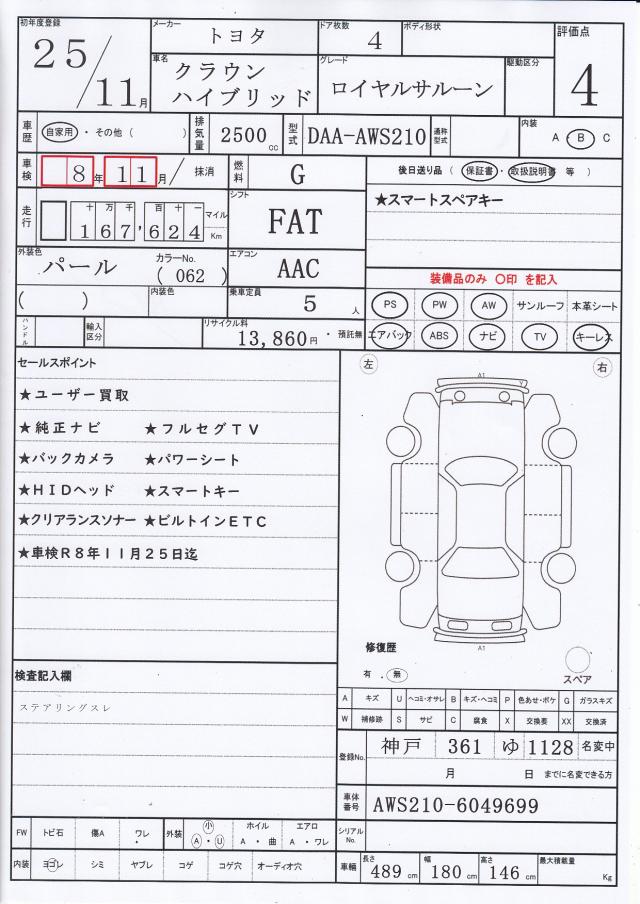 初年度登録 25/11月
メーカー トヨタ
ドア枚数 4
ボディ形状
評価点 4
車名 クラウン
ハイブリッド
グレード ロイヤルサルーン
駆動区分
車歴 自家用・その他( )
排気量 2500cc
型式 DAA-AWS210
通称型式
内装 A・B・C
車検 8年11月/抹消
燃料 G
後日送り品(保証書・取扱説明書 等)
走行 十万千百十一
167,624 マイル Km
シフト FAT
★スマートスペアキー
外装色 パール
カラーNo. (062)
エアコン AAC
装備品のみ 〇印 を記入
( )
内装色
乗車定員 5人
PS PW AW サンルーフ 本革シート
ハンドル
輸入区分
リサイクル料 13,860円・預託無
エアバック ABS ナビ TV キーレス
セールスポイント
★ユーザー買取
★純正ナビ ★フルセグTV
★バックカメラ ★パワーシート
★HIDヘッド ★スマートキー
★クリアランスソナー ★ビルトインETC
★車検R8年11月25日迄
左 右
A1
A1
修復歴
有・無
スペア
検査記入欄
ステアリングスレ
A キズ U ヘコミ・オサレ B キズ・ヘコミ P 色あせ・ボケ G ガラスキズ
W 補修跡 S サビ C 腐食 X 交換要 XX 交換済
登録No. 神戸 361 ゆ 1128 名変中
月 日 までに名変できる方
車体番号 AWS210-6049699
FW トビ石 傷A ワレ
外装 小 A・U
ホイル A・曲
エアロ A・ワレ
シリアルNo.
内装 ヨゴレ シミ ヤブレ コゲ コゲ穴 オーディオ穴
車輛 長さ 489cm 幅 180cm 高さ 146cm 最大積載量 Kg